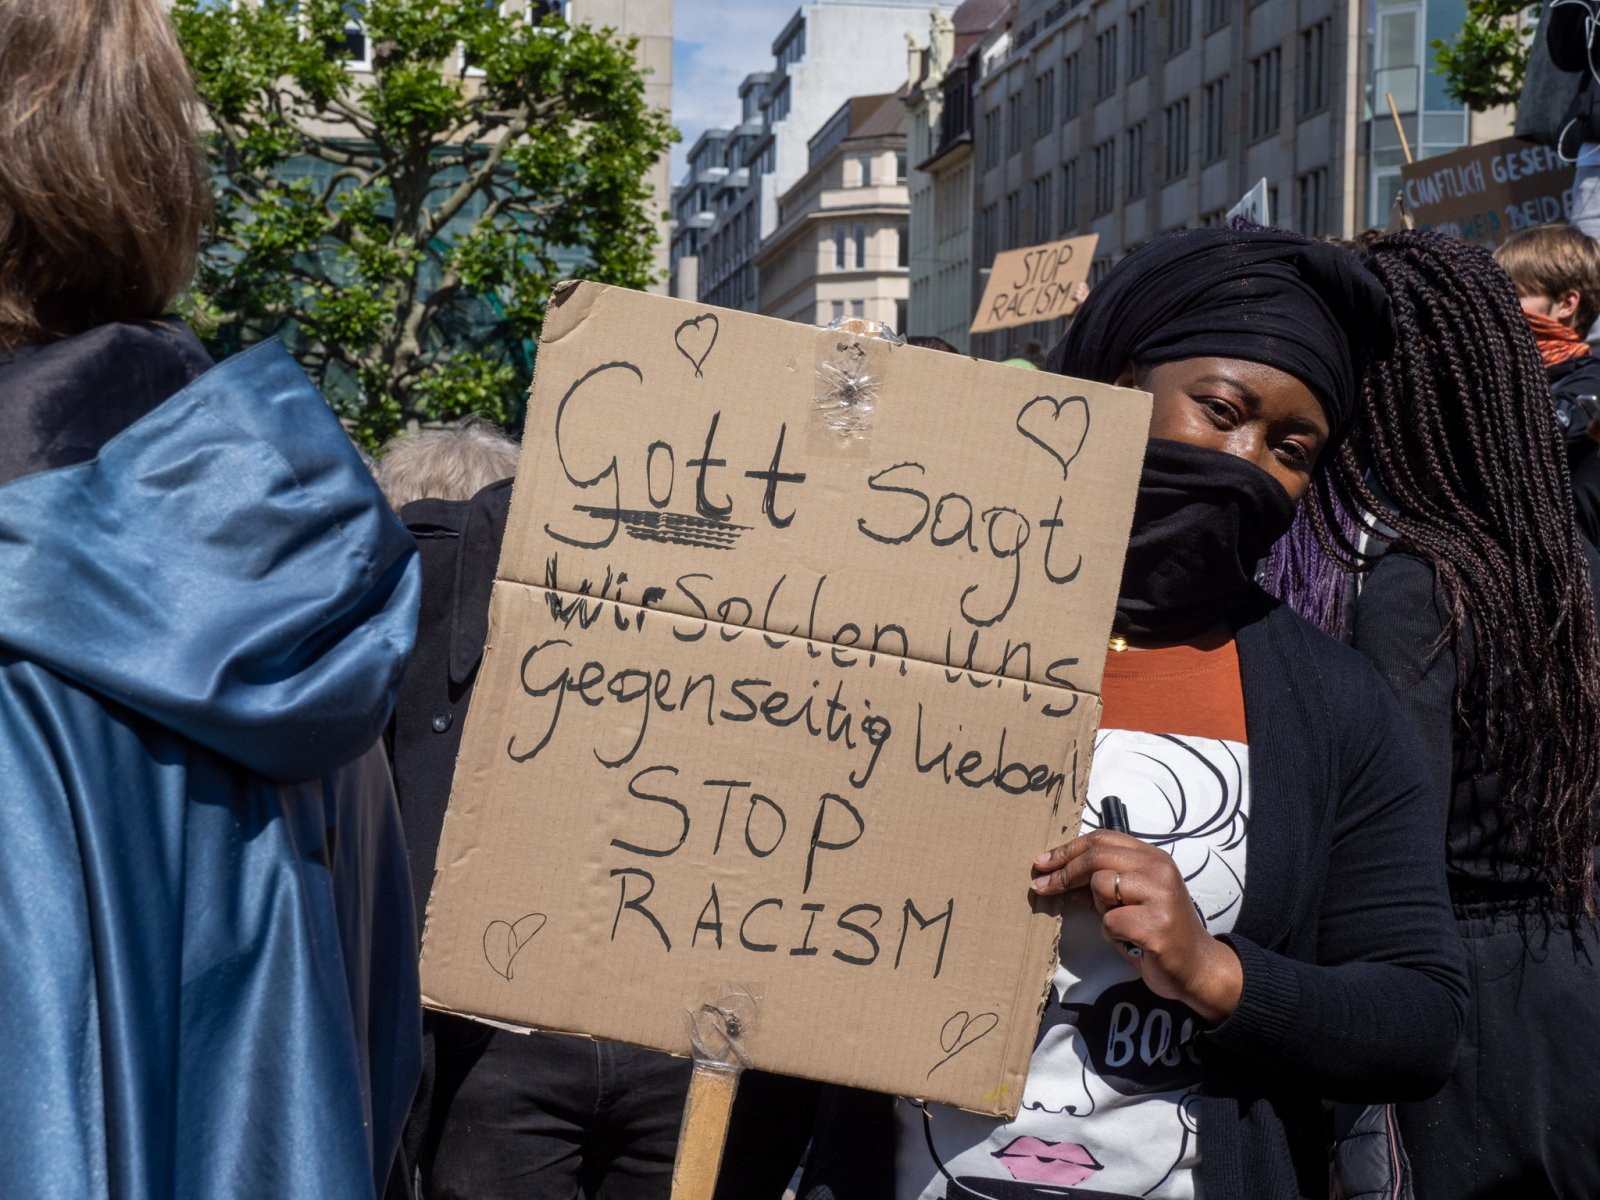 Gott sagt
Wir sollen uns
Gegenseitig lieben!
STOP
RACISM
STOP
RACISM
CHAFTLICH GESEH
WEIB BEIDE